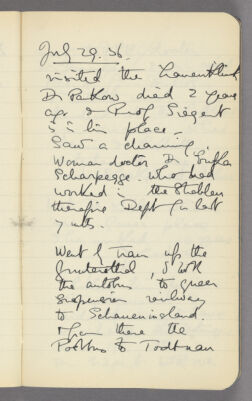 July 29. 36.
visited the Frauenklinik
Dr Pankow died 2 years
ago & Prof Siegert
is in his place.
Saw a charming
woman doctor Dr
who had
worked in the Strahlen
therapie Dept for last
7 mths.
Went by tram up the
& took
the autobus to
suspension railway
to Schauinsland.
From there the
Postbus to Todtnau